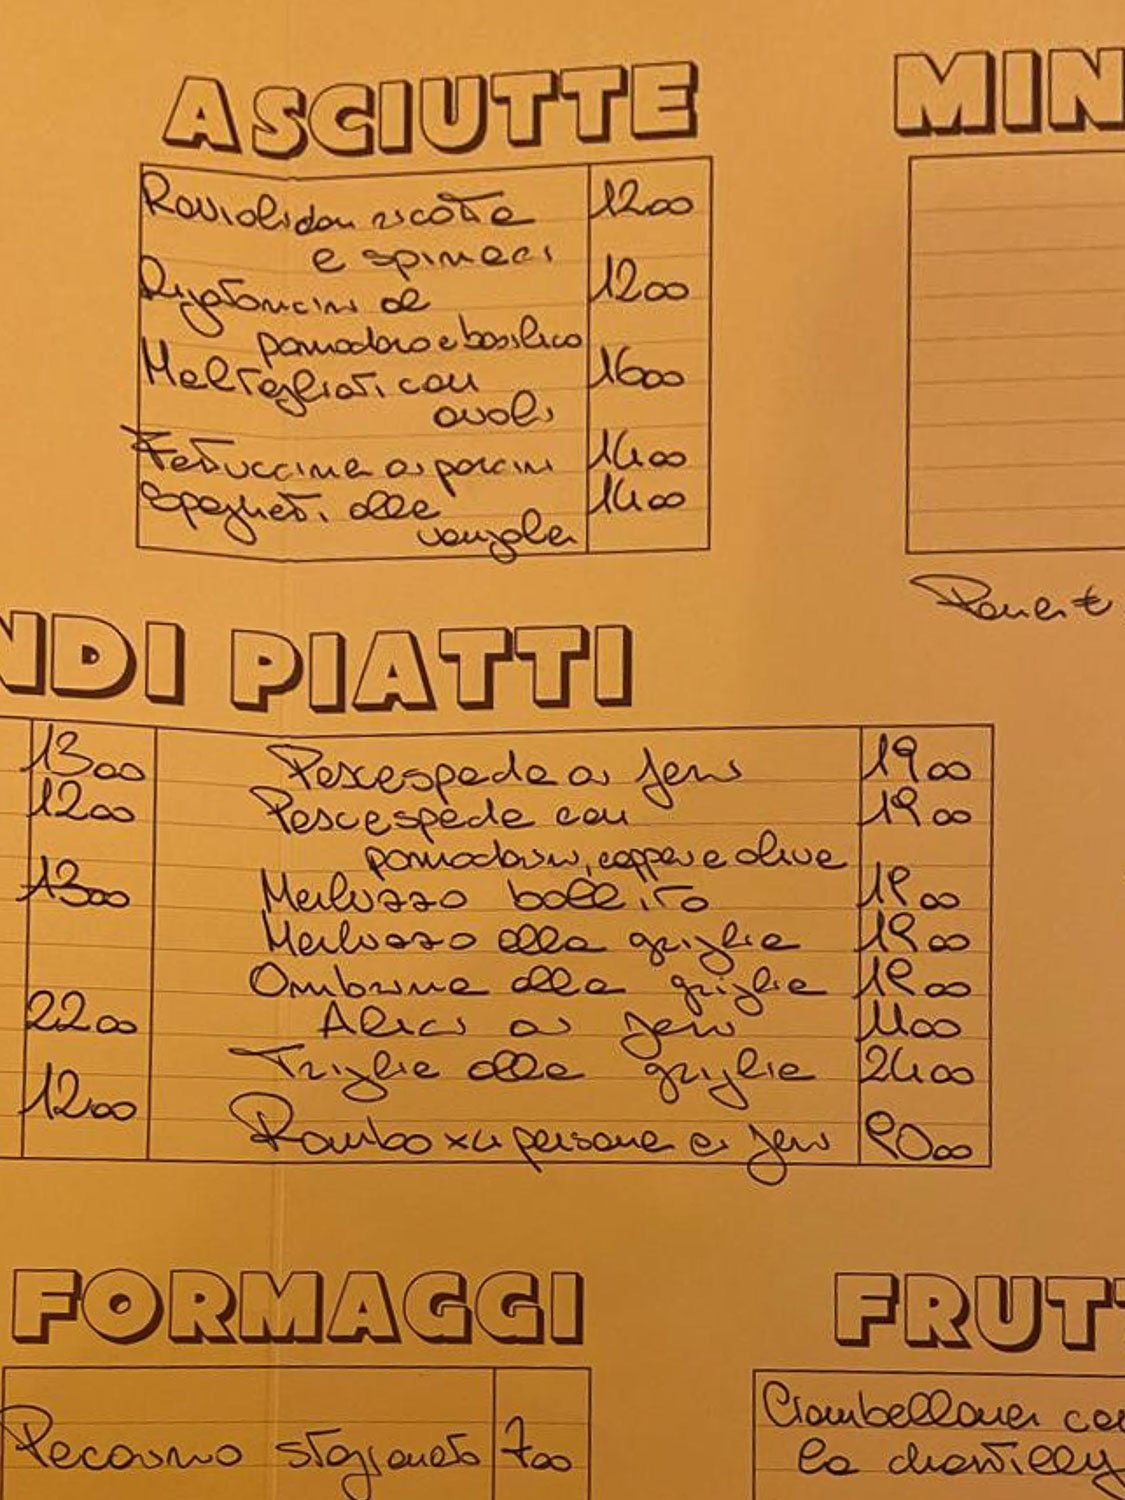 ASCIUTTE
Ravioli con ricotta 1200
e spinaci
Rigatoncini al 1200
pomodoro e basilico
Maltagliati con 1600
ovoli
Fettuccine ai porcini 1400
Spaghetti alle 1400
vongole
MIN
Pane €
NDI PIATTI
1300 Pescespada ai ferri 1900
1200 Pescespada con 1900
pomodorini, capperi e olive
1300 Merluzzo bollito 1800
Merluzzo alla griglia 1800
Ombrina alla griglia 1800
2200 Alici ai ferri 1100
Triglie alla griglia 2400
1200 Rombo x 4 persone ai ferri 9000
FORMAGGI
Pecorino stagionato 700
FRUTT
Ciambellone con
la chantilly